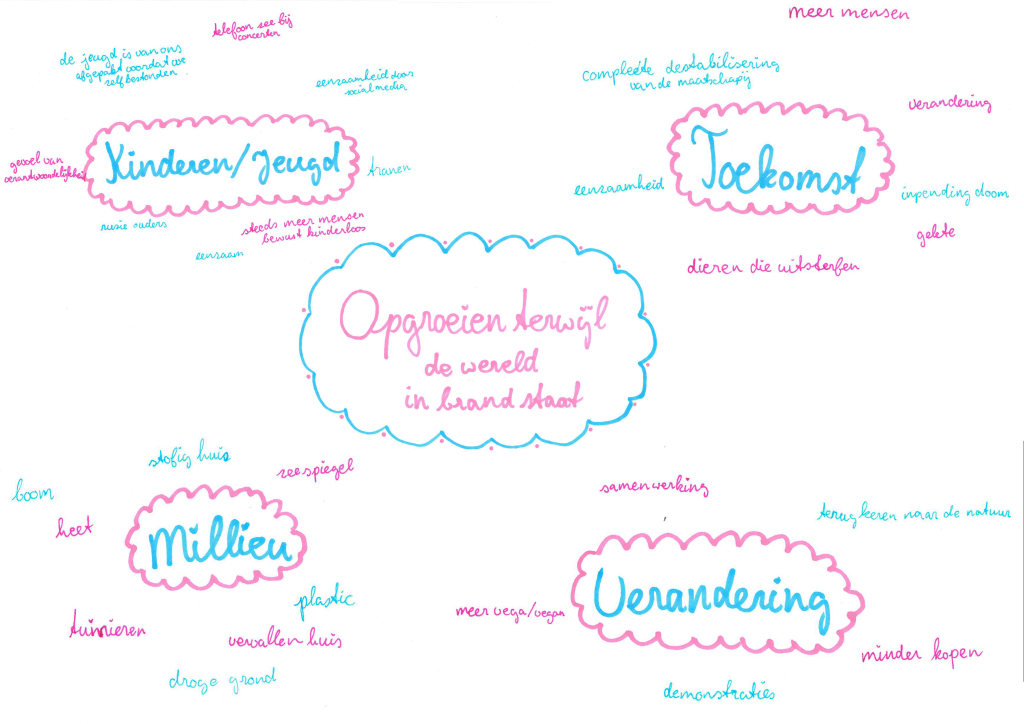 telefoon zee bij
concerten
de jeugd is van ons
afgepakt voordat we
zelf bestonden
eenzaamheid door
social media
gevoel van
verantwoordelijkheid
Kinderen/Jeugd
tranen
rusie ouders
steeds meer mensen
bewust kinderloos
eenzaam
meer mensen
compleete destabilisering
van de maatschapij
verandering
Toekomst
eenzaamheid
inpending doom
gekte
dieren die uitsterfen
Opgroeien terwijl
de wereld
in brand staat
stofig huis
zeespiegel
boom
heet
Millieu
plastic
tuinieren
vervallen huis
droge grond
samenwerking
terug keren naar de natuur
Verandering
meer vega/vegan
minder kopen
demonstraties